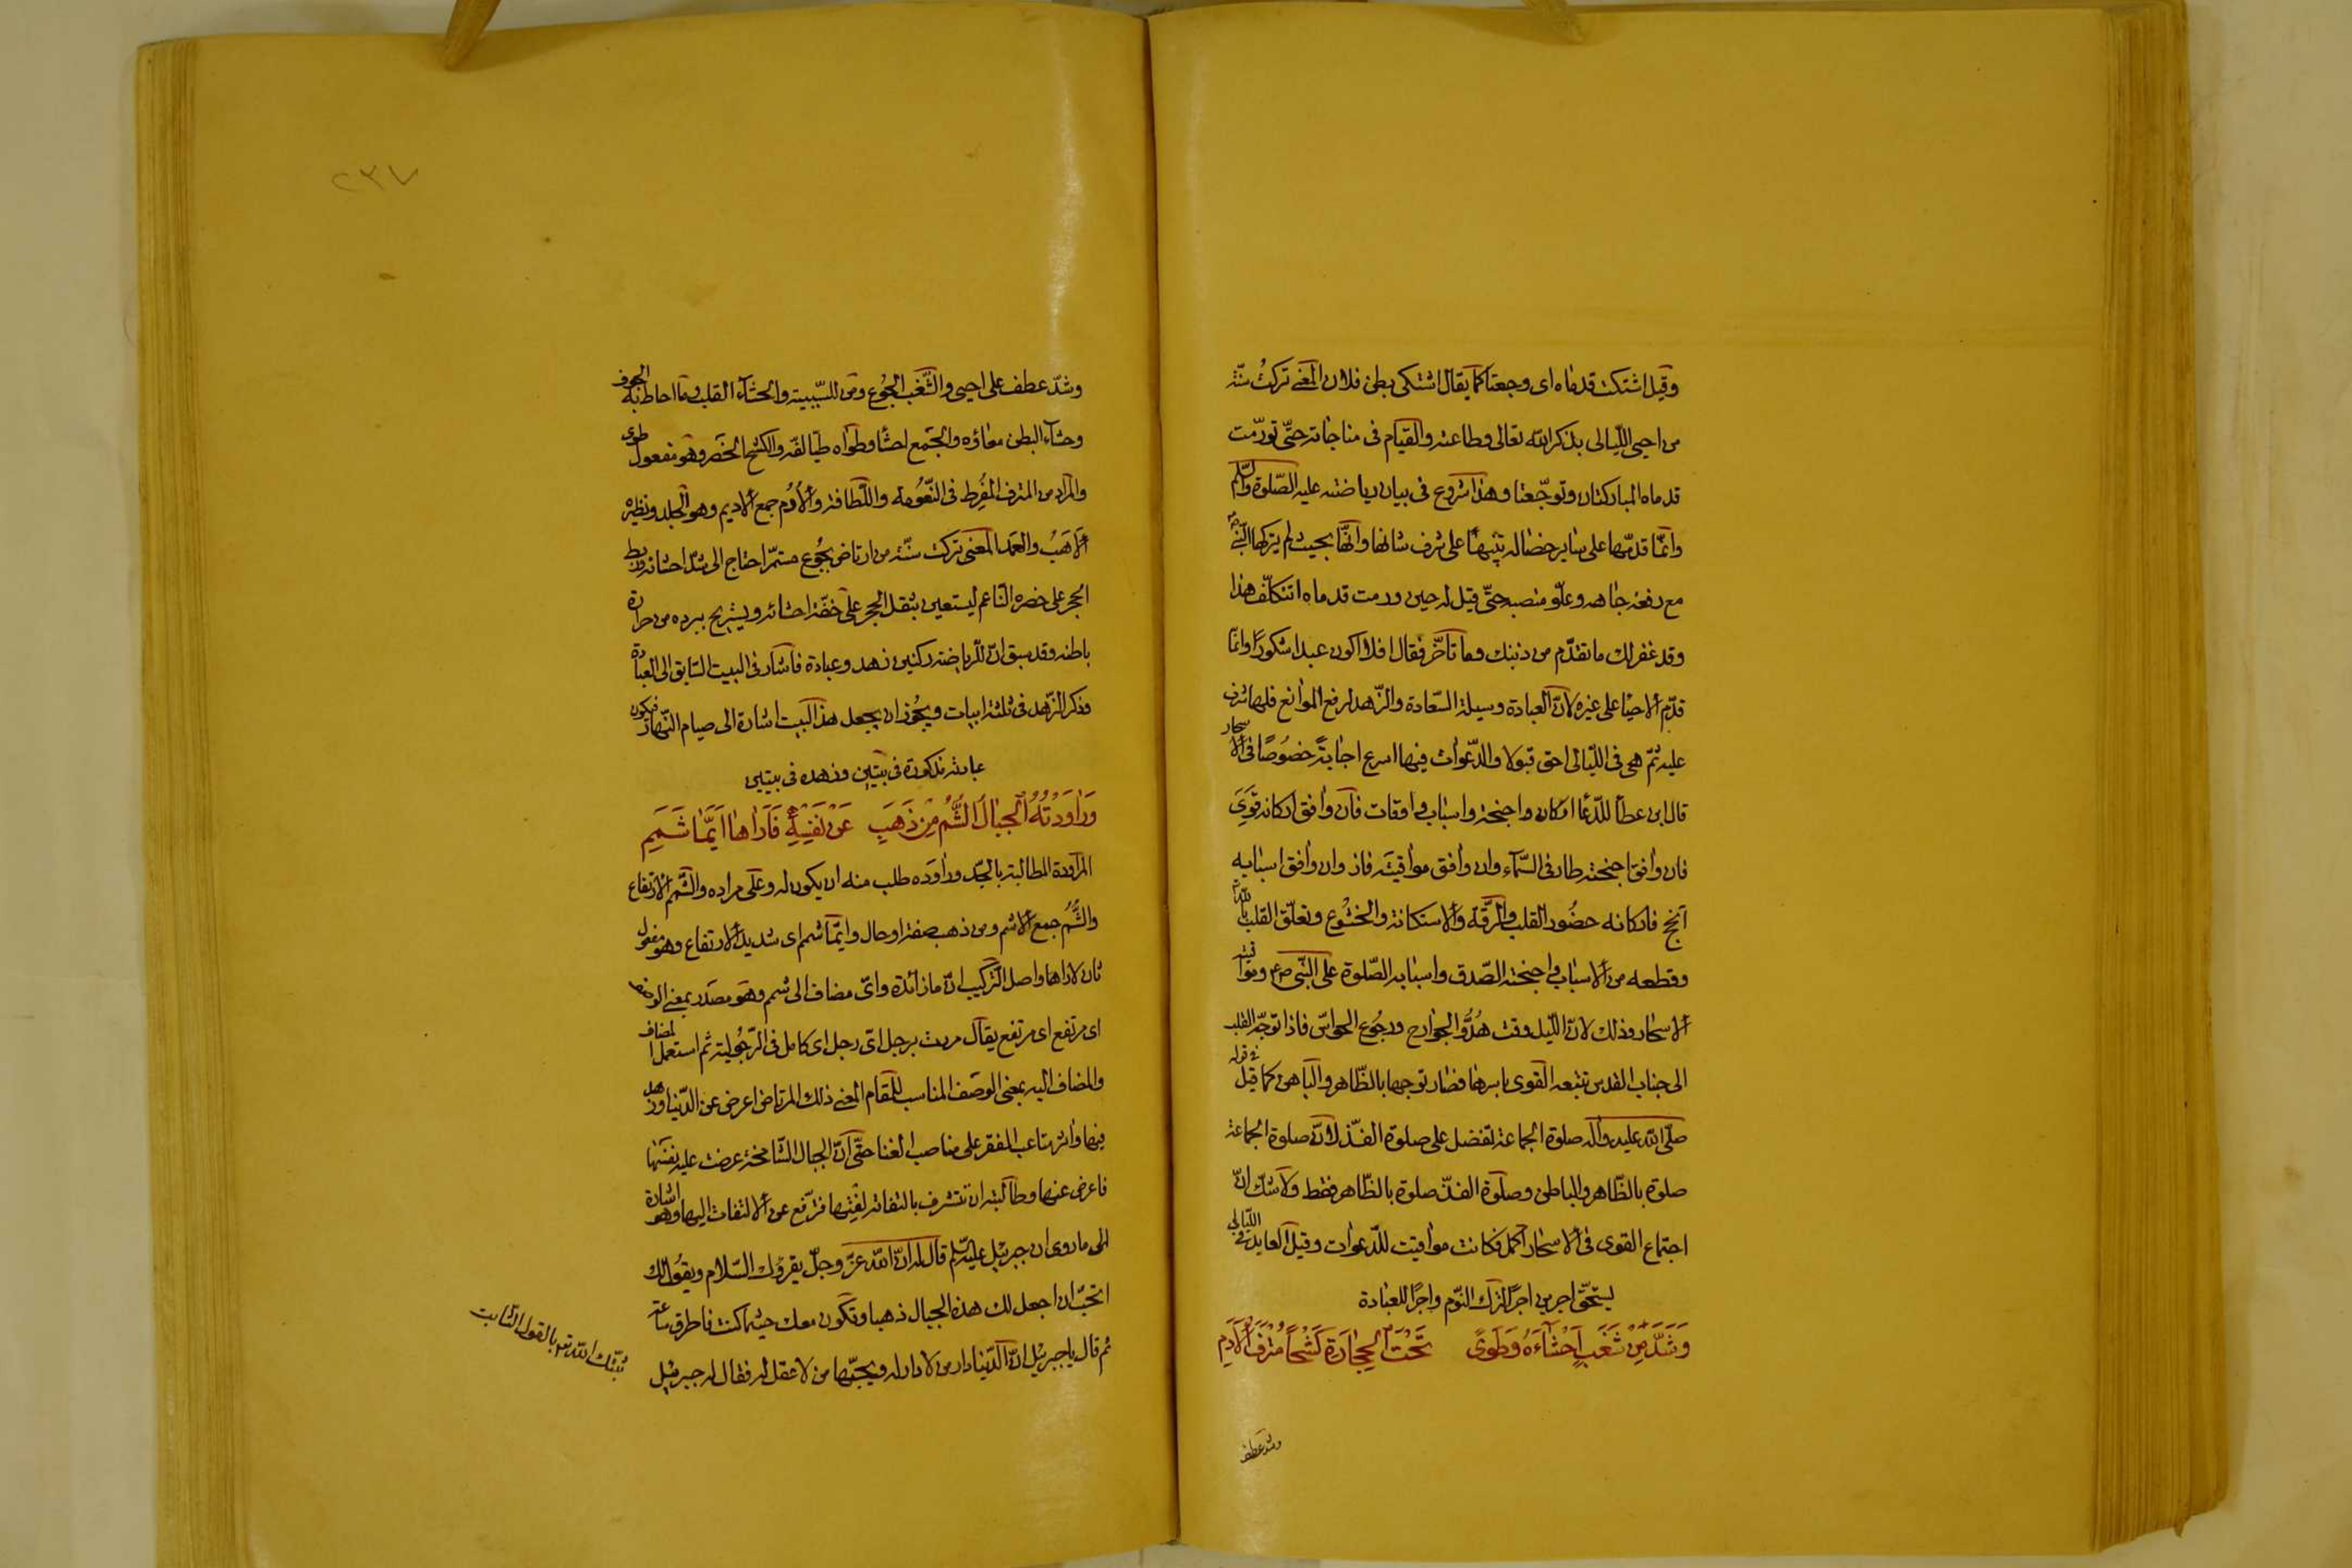 وقيل اشتكت قدماه اى وجعتا كما يقال اشتكى بطن فلان المعنى تركت سنّة
من احيى اللّيالى بذكر الله تعالى وطاعته والقيام فى مناجاته حتّى تورّمت
قدماه المباركتان وتوجّعتا وهذا شروع فى بيان رياضته عليه الصّلوة والسّلم
وانّما قدّمها على ساير خصاله تنبيها على شرف شانها وانّها بحيث لم يتركها النّبى
مع رفعة جاهه وعلوّ منصبه حتّى قيل له حين ورمت قدماه اتتكلّف هذا
وقد غفر لك ما تقدّم من ذنبك وما تأخّر فقال افلا اكون عبدا شكورا وانّما
قدّم الاحيا على غيره لانّ العبادة وسيلة السّعادة والزّهد لرفع الموانع فلها شرف
عليه ثمّ هى فى اللّيالى احق قبولا والدّعوات فيها اسرع اجابة خصوصًا فى الاسحار
قال ابن عطأ للدّعا اركان واجنحة واسباب واوقات فان وافق اركانه قوى
فان وافق اجنحته طار فى السّمآء وان وافق مواقيته فاز وان وافق اسبابه
انجح فاركانه حضُور القلب والرّقّة والاستكانة والخشُوع وتعلّق القلب بالله
وقطعه من الاسباب واجنحته الصّدق واسبابه الصّلوة على النّبى ص وموا قيته
الاسحار وذلك لانّ اللّيل وقت هُدُوّ الجوارح ورجُوع الحواسّ فاذا توجّه القلب
الى جناب القدس تتبعه القوى باسرها فصار توجها بالظّاهر والباطن كما قيل فى قوله
صلّى الله عليه وآله صلوة الجماعة تفضل على صلوة الفذّ لانّ صلوة الجماعة
صلوة بالظّاهر والباطن وصلوة الفذّ صلوة بالظّاهر فقط ولا شكّ انّ
اجتماع القوى فى الاسحار اكمل فكانت مواقيت للدّعوات وقيل العابد فى اللّيالى
يستحقّ اجرين اجرًا لترك النّوم واجرًا للعبادة
وَشَدَّ مِنْ سَغَبٍ اَحْشَاءَهُ وَطَوىٰ تَحْتَ الْحِجَارَةِ كَشْحًا مُتْرَفَ الْاَدَمِ
وشد عطف
٢٣٧
وشدّ عطف على احيى والسّغب الجُوع ومن للسّببية والحشآء القلب وما احاط به الجوف
وحشآء البطن معاؤه والجمع احشا وطواه طيّا لفّه والكشح الخصر وهو مفعول طوى
والمراد من المترف المُفرِط فى النّعُومة واللّطافة والأدُم جمع الاديم وهو الجلد ونظيره
الاهَبُ والعَمد المعنى تركت سنّة من ارتاض بجُوع مستمرّ احتاج الى شدّ احشائه وربط
الحجر على خصره النّاعم ليستعين بثقل الحجر على خفّة احشائه ويستريح ببرده من حرارة
باطنه وقد سبق انّ للرّياضة ركنين زهد وعبادة فاشار فى البيت السّابق الى العبادة
وذكر الزّهد فى ثلثة ابيات ويجُوز ان يجعل هذا البيت اشارة الى صيام النّهار فيكون
عبادته مذكورة فى بيتين وزهده فى بيتين
وَرَاوَدَتْهُ الْجِبَالُ الشُّمُّ مِنْ ذَهَبٍ عَنْ نَفْسِهِ فَأَرَاهَا اَيَّمَا شَمَمِ
المراودة المطالبة بالجدّ وراوَده طلب منه ان يكون له وعلى مراده والشّمم الارتفاع
والشُّمُّ جمع الاشم ومن ذهب صفة او حال وايّما شمم اى شديد الارتفاع وهو مفعول
ثان لاراها واصل التّركيب انّ ما زائدة واىّ مضاف الى شمم وهو مصدر بمعنى الوصف
اى مرتفع اى مرتفع يقال مررت برجل اىّ رجل اى كامل فى الرّجُولية ثم استعمل المضاف
والمضاف اليه بمعنى الوصف المناسب للمقام المعنى ذلك المرتاض اعرض عن الدّنيا وزهد
فيها واثر متاعب الفقر على مناصب الغنا حتّى انّ الجبال الشّامخة عرضت عليه نفسها
فاعرض عنها وطالبته ان تتشرف بالتفاته لفتها فترفّع عن الالتفات اليها وهو اشارة
الى ما روى ان جبرئيل عليه السّلم قال له انّ الله عزّ وجلّ يقرؤك السّلام ويقُول لك
اتحبّ ان اجعل لك هذه الجبال ذهبا وتكون معك حيثما كنت فاطرق ساعة
ثم قال يا جبرئيل انّ الدّنيا دار من لا دار له ويحبّها من لا عقل له فقال له جبرئيل
ثبّتك الله بالقول الثّابت